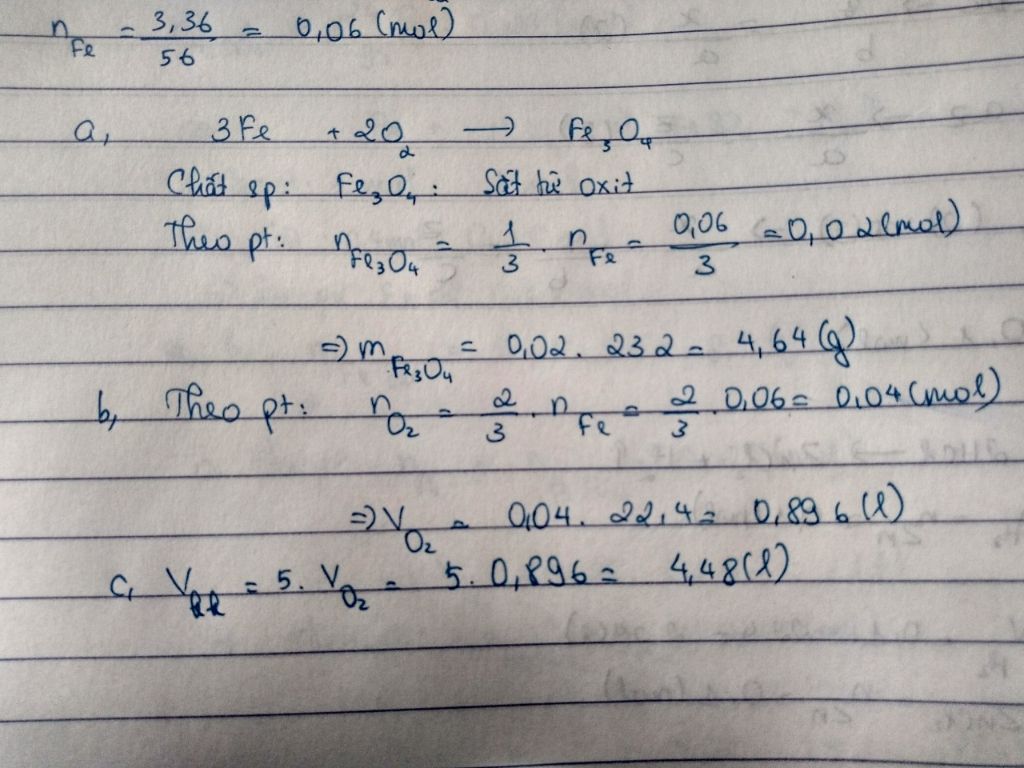 n Fe = 3,36/56 = 0,06 (mol)
a, 3Fe + 2O2 → Fe3O4
Chất sp: Fe3O4: Sắt từ oxit
Theo pt: n Fe3O4 = 1/3 . n Fe = 0,06/3 = 0,02 (mol)
=> m Fe3O4 = 0,02. 232 = 4,64 (g)
b, Theo pt: n O2 = 2/3 . n Fe = 2/3 . 0,06 = 0,04 (mol)
=> V O2 = 0,04. 22,4 = 0,896 (l)
c, V kk = 5. V O2 = 5. 0,896 = 4,48 (l)